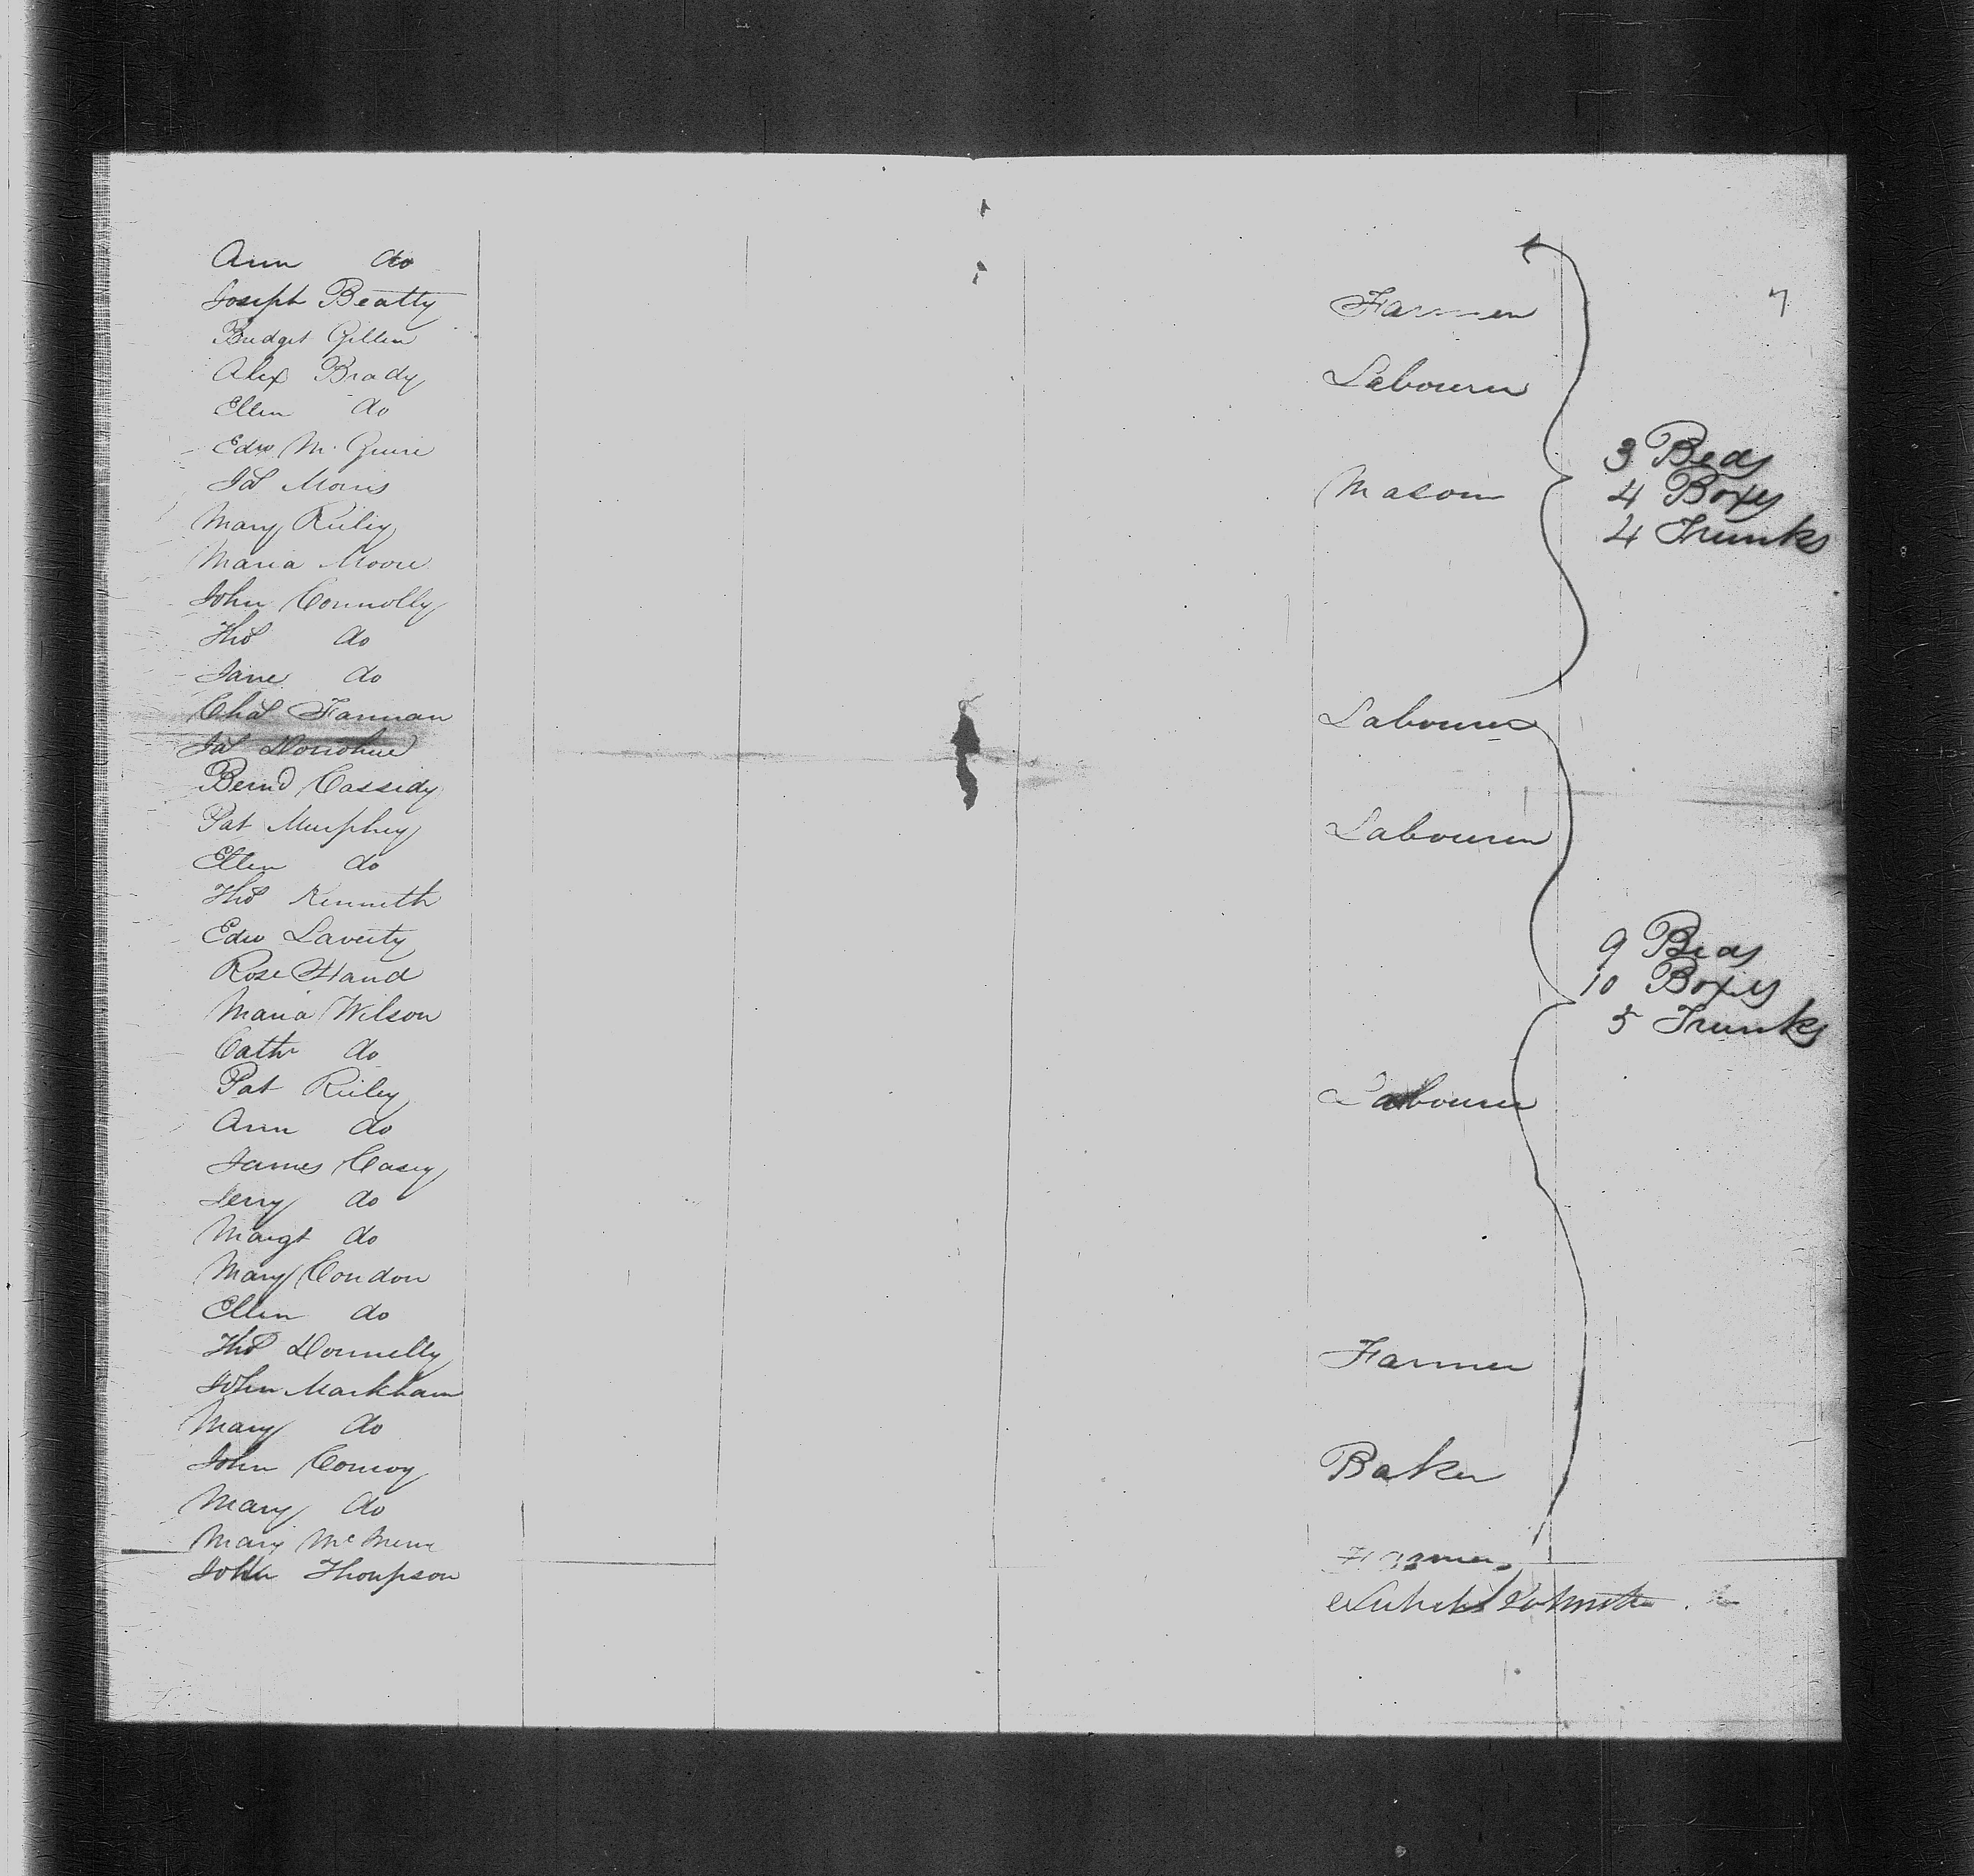 Ann do
Joseph Beatty Farmer 7
Bridget Gillen
Alex Brady Labourer
Ellen do
Edw McGuire 3 Beds
Jas Morris Mason 4 Boxes
Mary Riiley 4 Trunks
Maria Moore
John Connolly
Thos do
Jane do
Chas Farman Labourer
Jas Donohue
Bernd Cassidy
Pat Murphey Labourer
Ellen do
Thos Kenneth
Edw Laverty 9 Beds
Rose Hand 10 Boxes
Maria Wilson 5 Trunks
Cathr do
Pat Riiley Labourer
Ann do
James Casey
Jerry do
Margt do
Mary Condon
Ellen do
Thos Donnelly Farmer
John Markham
Mary do
John Conroy Baker
Mary do
Mary Mc
John Thompson Farmer